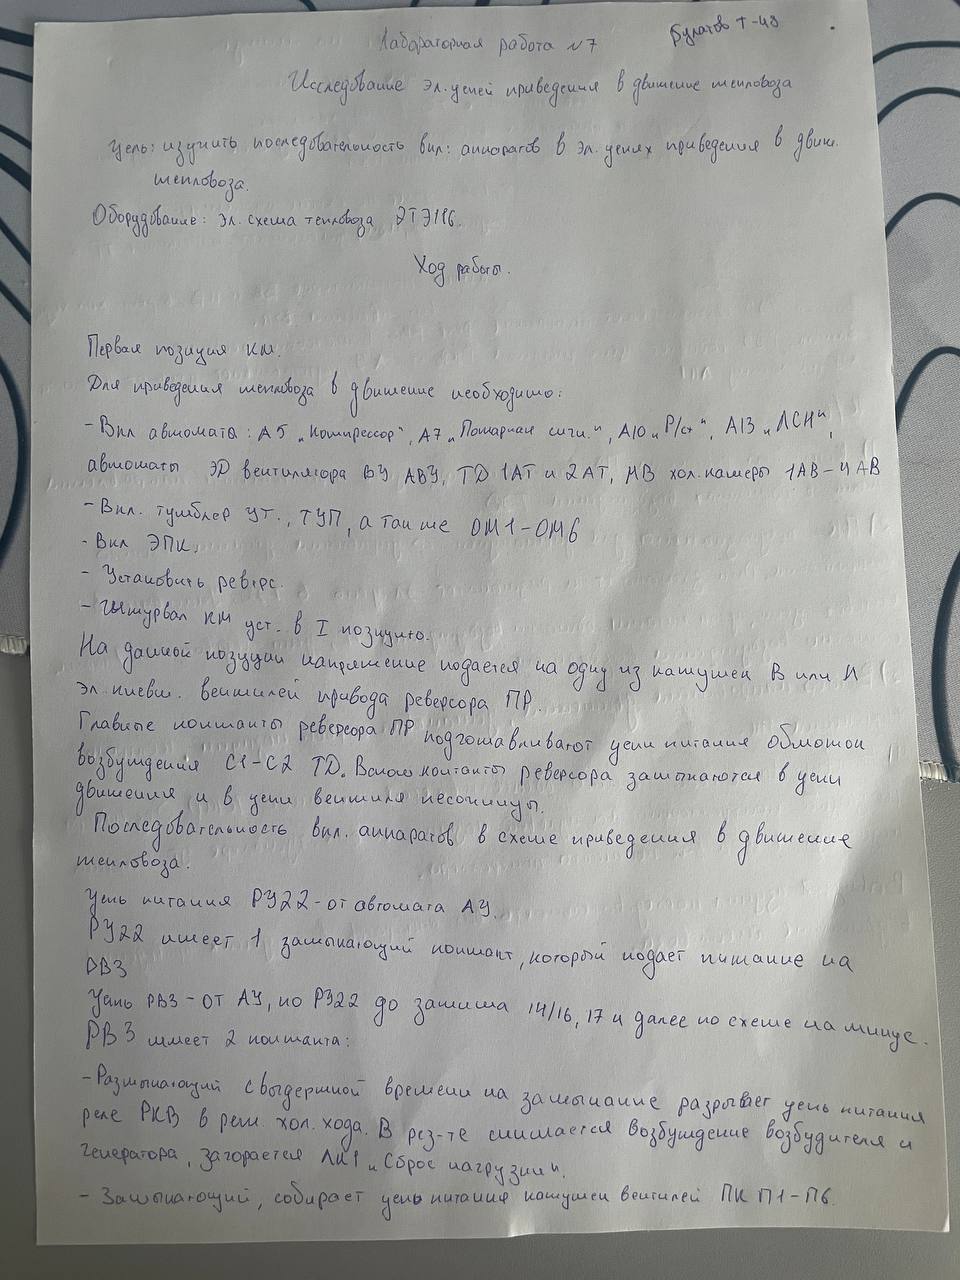 Булатов Т-43
Лабараторная работа N7
Исследование эл. цепей приведения в движение тепловоза
Цель: изучить последовательность вкл: аппаратов в эл. цепях приведения в движ.
тепловоза.
Оборудование: эл. схема тепловоза 2ТЭ116.
Ход работы.
Первая позиция КМ.
Для приведения тепловоза в движение необходимо:
- Вкл автомата: А5 „Компрессор", А7 „Пожарная сигн.", А10 „Р/ст", А13 „ЛСН",
автоматы ЭД вентилятора ВУ, АВУ, ТД 1АТ и 2АТ, МВ хол. камеры 1АВ-4АВ
- Вкл. тумблер УТ., ТУП, а так же ОМ1-ОМ6
- Вкл ЭПК.
- Установить реверс.
- Штурвал КМ уст. в I позицию.
На данной позиции напряжение подается на одну из катушек В или Н
эл. пневм. вентилей привода реверсора ПР.
Главные контакты реверсора ПР подготавливают цепи питания обмоток
возбуждения С1-С2 ТД. Вспом контакты реверсора замыкаются в цепи
движения и в цепи вентиля песочницы.
Последовательность вкл. аппаратов в схеме приведения в движение
тепловоза.
Цепь питания РУ22 - от автомата АУ.
РУ22 имеет 1 замыкающий контакт, который подает питание на
РВ3
Цепь РВ3 - от АУ, по РУ22 до зажима 14/16, 17 и далее по схеме на минус.
РВ3 имеет 2 контакта:
- Размыкающий с выдержкой времени на замыкание разрывает цепь питания
реле РКВ в реж. хол. хода. В рез-те снимается возбуждение возбудителя и
генератора, загорается ЛН1 „Сброс нагрузки".
- Замыкающий, собирает цепь питания катушек вентилей ПК П1-П6.